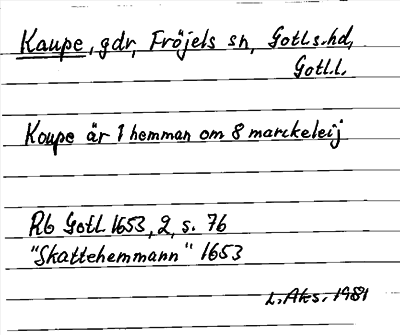 Kaupe, gdr, Fröjels sn, Gotl.s.hd,
Gotl.l.
Koupe är 1 hemman om 8 marckeleij
Rb Gotl 1653, 2, s. 76
"Skattehemmann" 1653
L. Aks. 1981